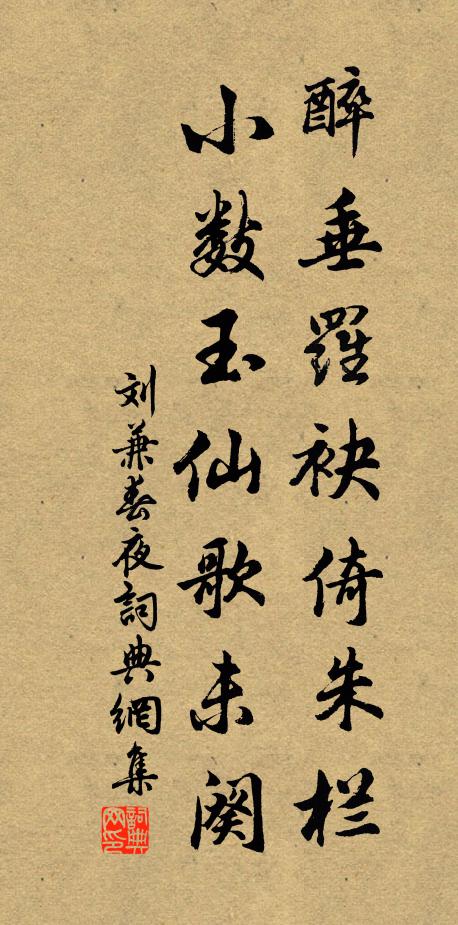 醉垂羅袂倚朱栏
小数玉仙歌未阕
刘兼春夜詞典網集
詞典网印